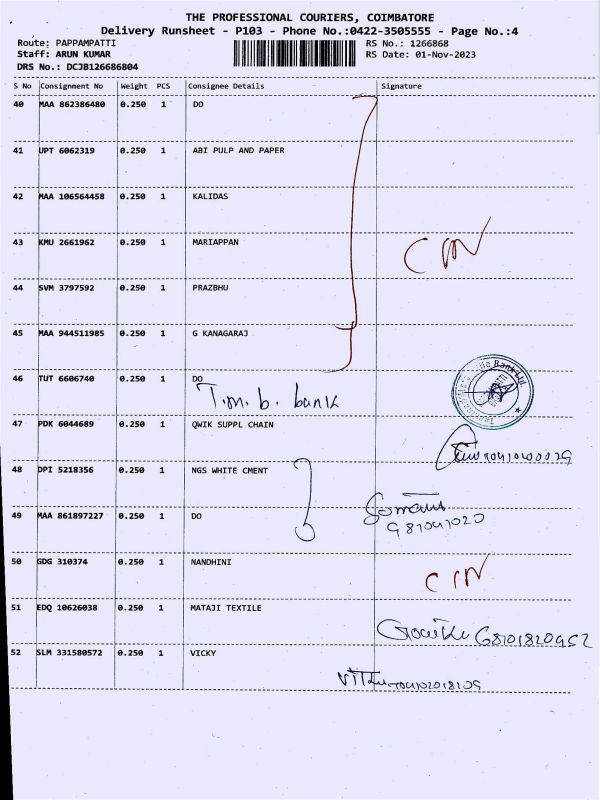 THE PROFESSIONAL COURIERS, COIMBATORE
Delivery Runsheet - P103 - Phone No.:0422-3505555 - Page No.:4
Route: PAPPAMPATTI RS No.: 1266868
Staff: ARUN KUMAR RS Date: 01-Nov-2023
DRS No.: DCJB126686804
S No Consignment No Weight PCS Consignee Details Signature
40 MAA 862386480 0.250 1 DO
41 UPT 6062319 0.250 1 ABI PULP AND PAPER
42 MAA 106564458 0.250 1 KALIDAS
43 KMU 2661962 0.250 1 MARIAPPAN
44 SVM 3797592 0.250 1 PRAZBHU
45 MAA 944511985 0.250 1 G KANAGARAJ
46 TUT 6606740 0.250 1 DO
T.m.b. bank
47 PDK 6044689 0.250 1 QWIK SUPPL CHAIN
48 DPI 5218356 0.250 1 NGS WHITE CMENT
49 MAA 861897227 0.250 1 DO
50 GDG 310374 0.250 1 NANDHINI
51 EDQ 10626038 0.250 1 MATAJI TEXTILE
52 SLM 331580572 0.250 1 VICKY